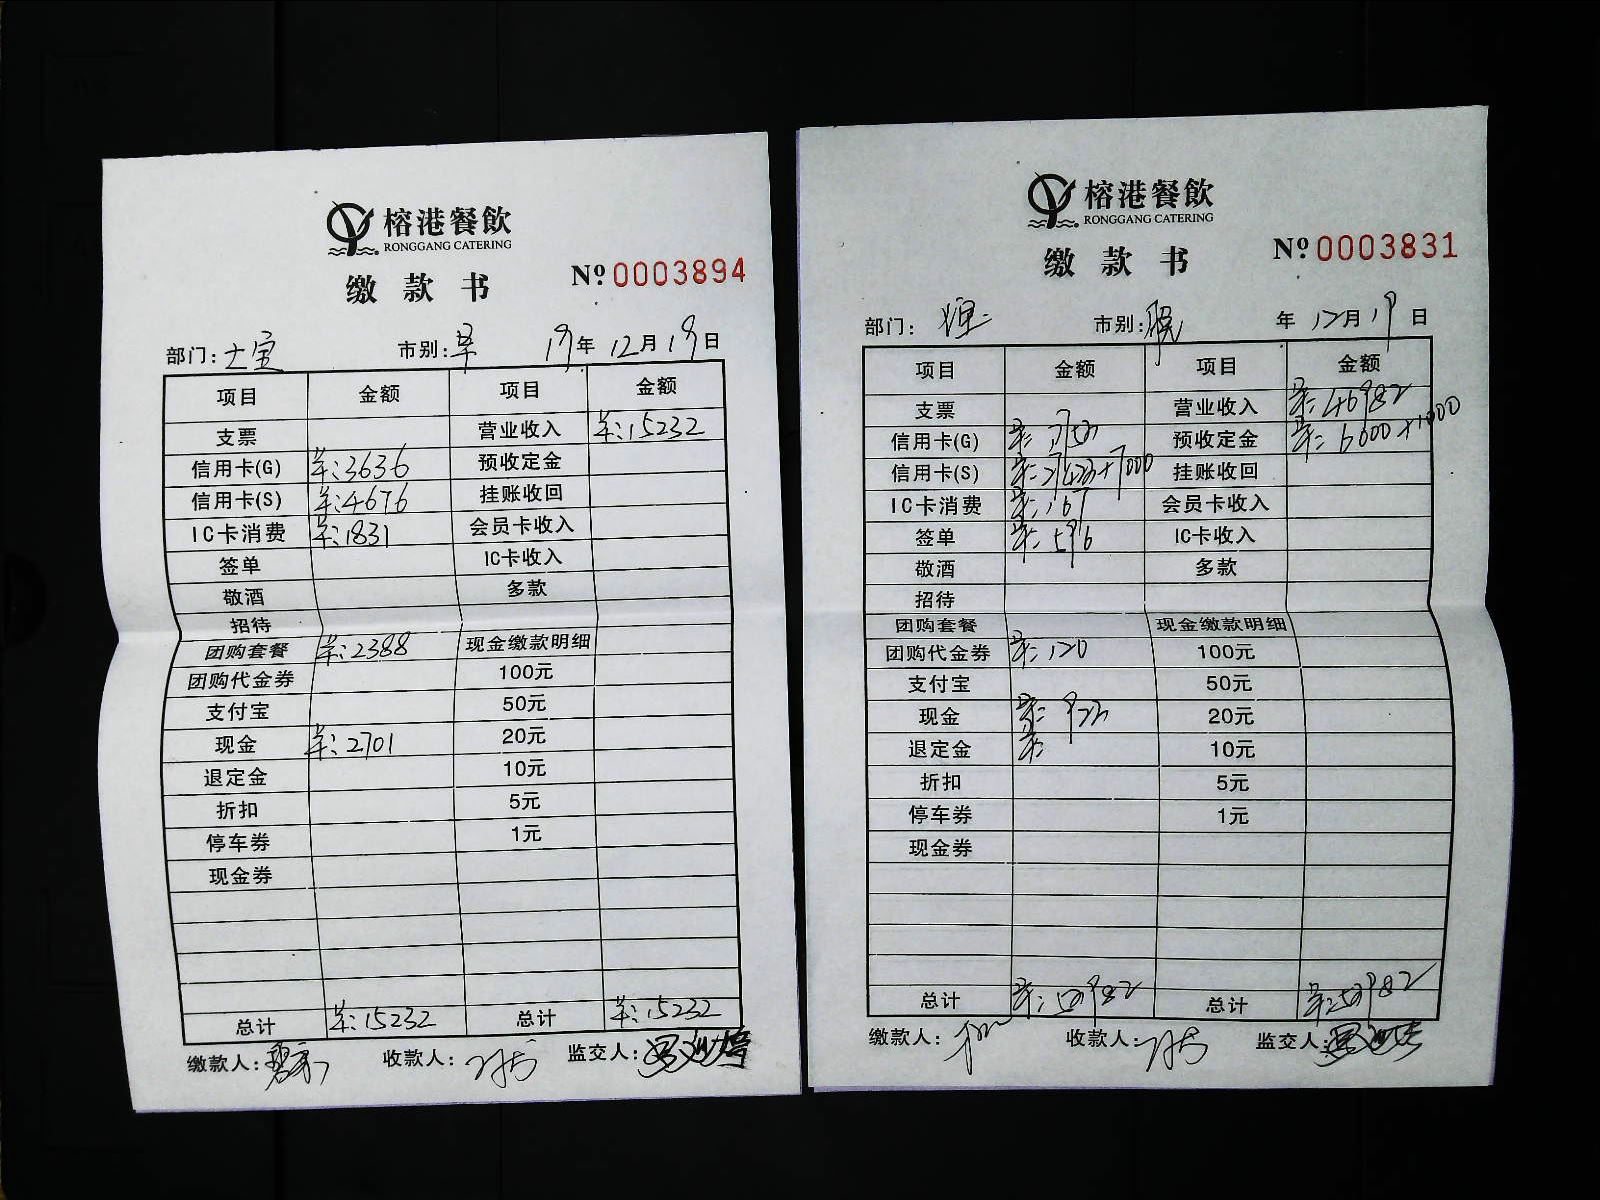 榕港餐飲
RONGGANG CATERING
缴款书
Nº 0003894
部门: 市别: 早 19年 12月 19日
项目 金额 项目 金额
支票 营业收入 ¥:15232
信用卡(G) ¥:3636 预收定金
信用卡(S) ¥:4676 挂账收回
IC卡消费 ¥:1831 会员卡收入
签单 IC卡收入
敬酒 多款
招待
团购套餐 ¥:2388 现金缴款明细
团购代金券 100元
支付宝 50元
现金 ¥:2701 20元
退定金 10元
折扣 5元
停车券 1元
现金券
总计 ¥:15232 总计 ¥:15232
缴款人: 收款人: 监交人:
榕港餐飲
RONGGANG CATERING
缴款书
Nº 0003831
部门: 市别: 年 12月 19日
项目 金额 项目 金额
支票 营业收入 ¥:46982
信用卡(G) 预收定金 ¥:6000+1000
信用卡(S) 挂账收回
IC卡消费 ¥:167 会员卡收入
签单 ¥:596 IC卡收入
敬酒 多款
招待
团购套餐 现金缴款明细
团购代金券 ¥:120 100元
支付宝 50元
现金 20元
退定金 ¥: 10元
折扣 5元
停车券 1元
现金券
总计 总计
缴款人: 收款人: 监交人: